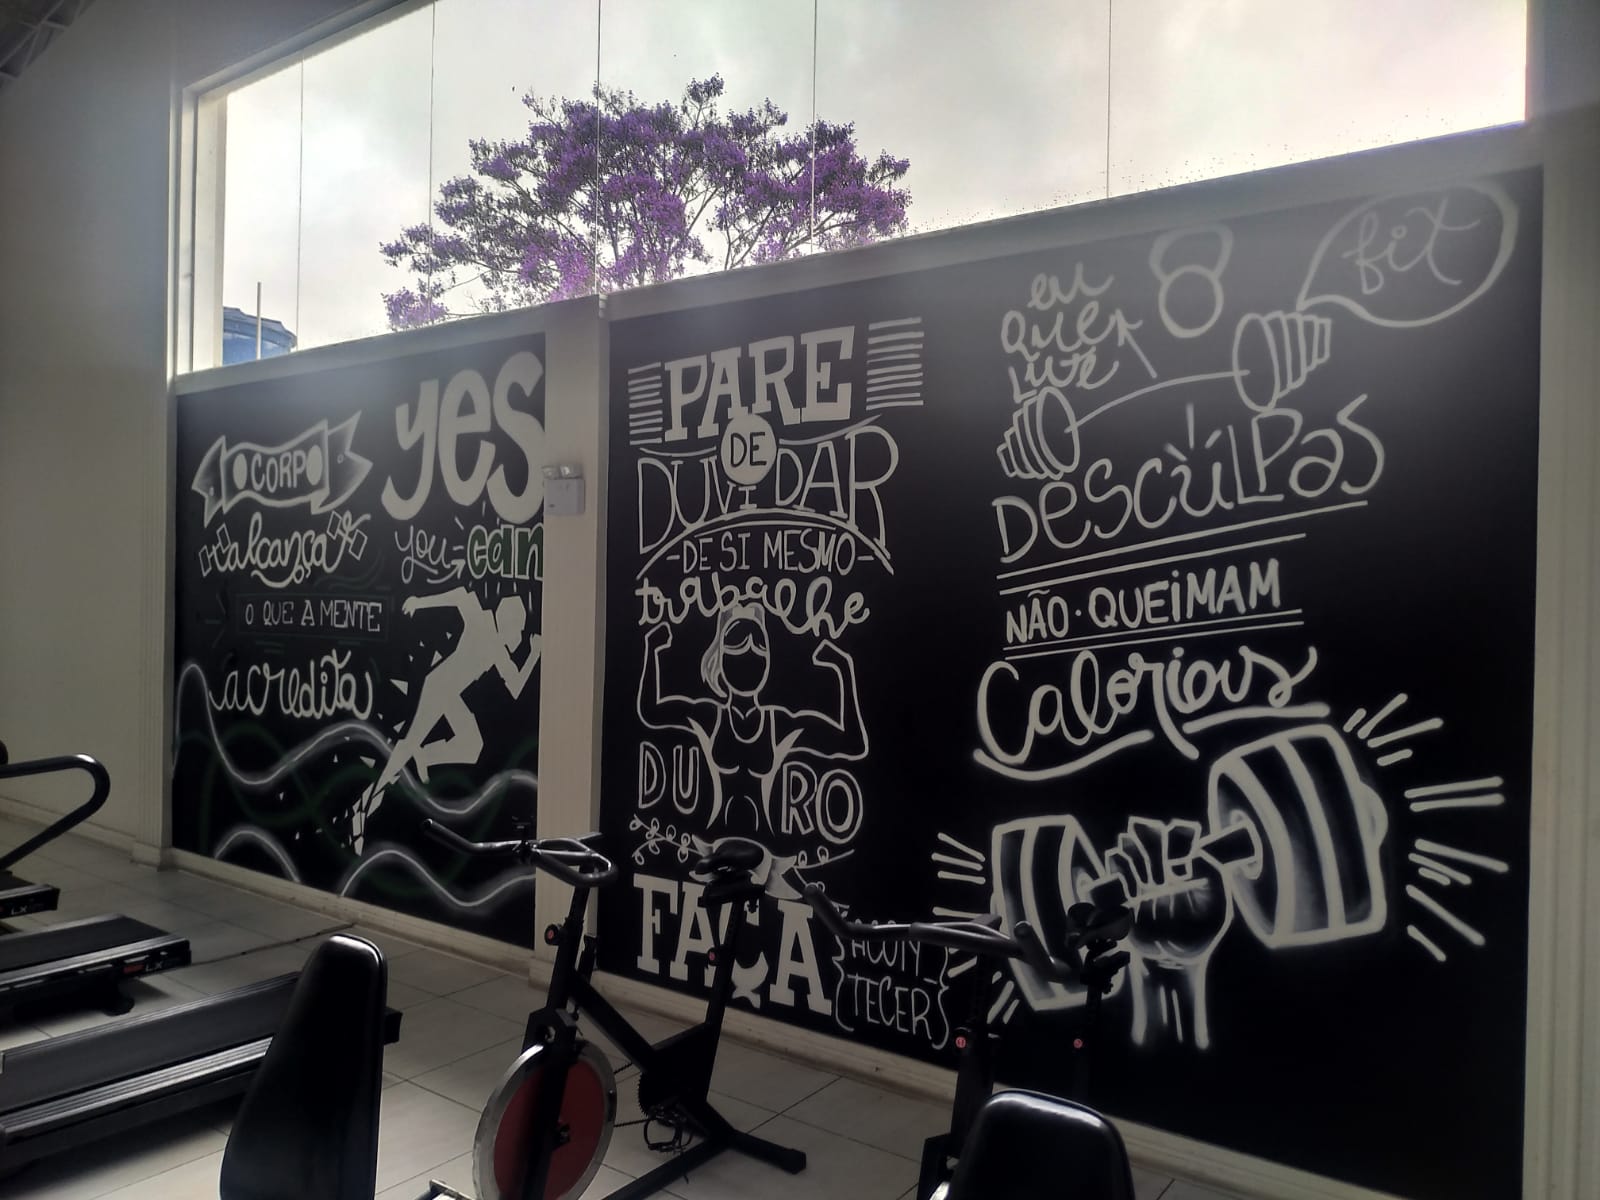 O CORPO
alcança
O QUE A MENTE
acredita
yes
you can
PARE
DE
DUVIDAR
-DE SI MESMO-
trabalhe
DURO
FAÇA
{ACONTECER}
eu
quer
fit
DESCULPAS
NÃO·QUEIMAM
Calorias
LX
LX